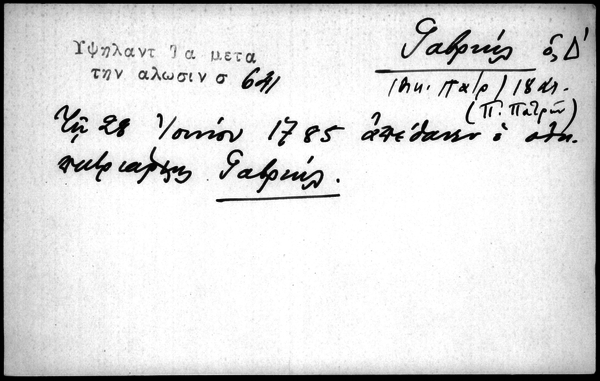 Υψηλαντ Τα μετα
την αλωσιν σ 641
Γαβριήλ ὁ Δ'
Οἰκ. Πατρ / 18 αι.
(Π. Πατρῶν)
Τῇ 28 Ἰουνίου 1785 ἀπέθανεν ὁ οἰκ.
πατριάρχης Γαβριήλ.